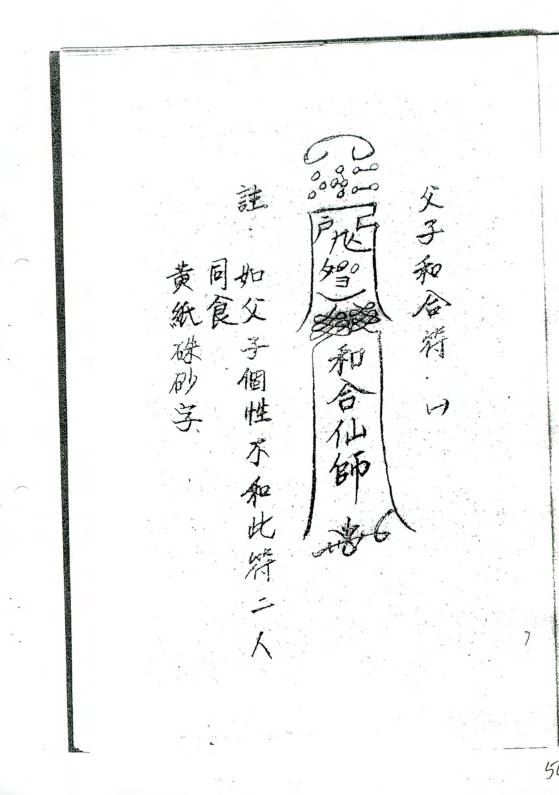 父子和合符.(一)
和合仙師
註:如父子個性不和此符二人
同食
黃紙硃砂字